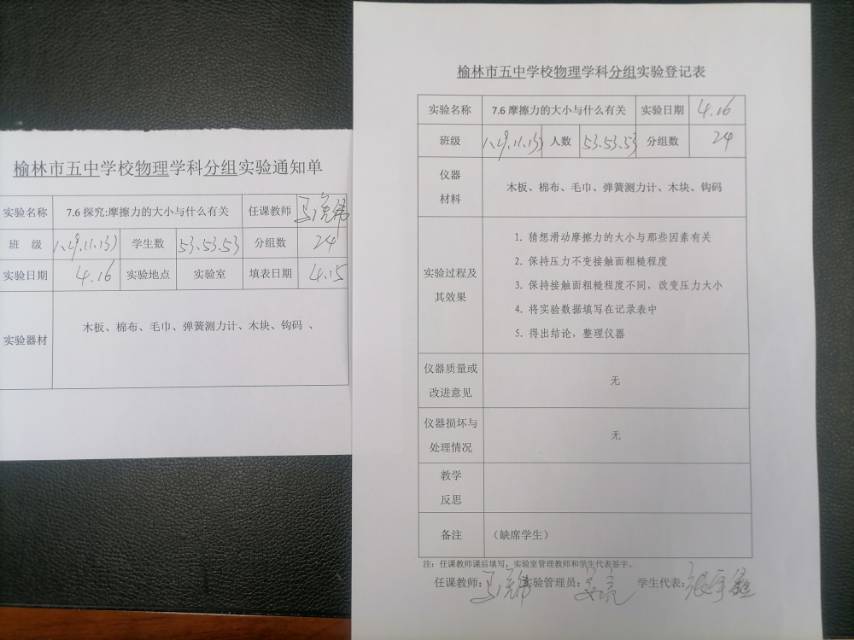 榆林市五中学校物理学科分组实验通知单
实验名称 7.6 探究:摩擦力的大小与什么有关 任课教师
班 级 学生数 53.53.53 分组数 24
实验日期 4.16 实验地点 实验室 填表日期 4.15
实验器材 木板、棉布、毛巾、弹簧测力计、木块、钩码 、
榆林市五中学校物理学科分组实验登记表
实验名称 7.6 摩擦力的大小与什么有关 实验日期 4.16
班级 人数 53.53.53 分组数 24
仪器
材料
木板、棉布、毛巾、弹簧测力计、木块、钩码
实验过程及
其效果
1. 猜想滑动摩擦力的大小与那些因素有关
2. 保持压力不变接触面粗糙程度
3. 保持接触面粗糙程度不同，改变压力大小
4. 将实验数据填写在记录表中
5. 得出结论，整理仪器
仪器质量或
改进意见
无
仪器损坏与
处理情况
无
教学
反思
备注 （缺席学生）
注：任课教师课后填写，实验室管理教师和学生代表签字。
任课教师： 实验管理员： 学生代表：